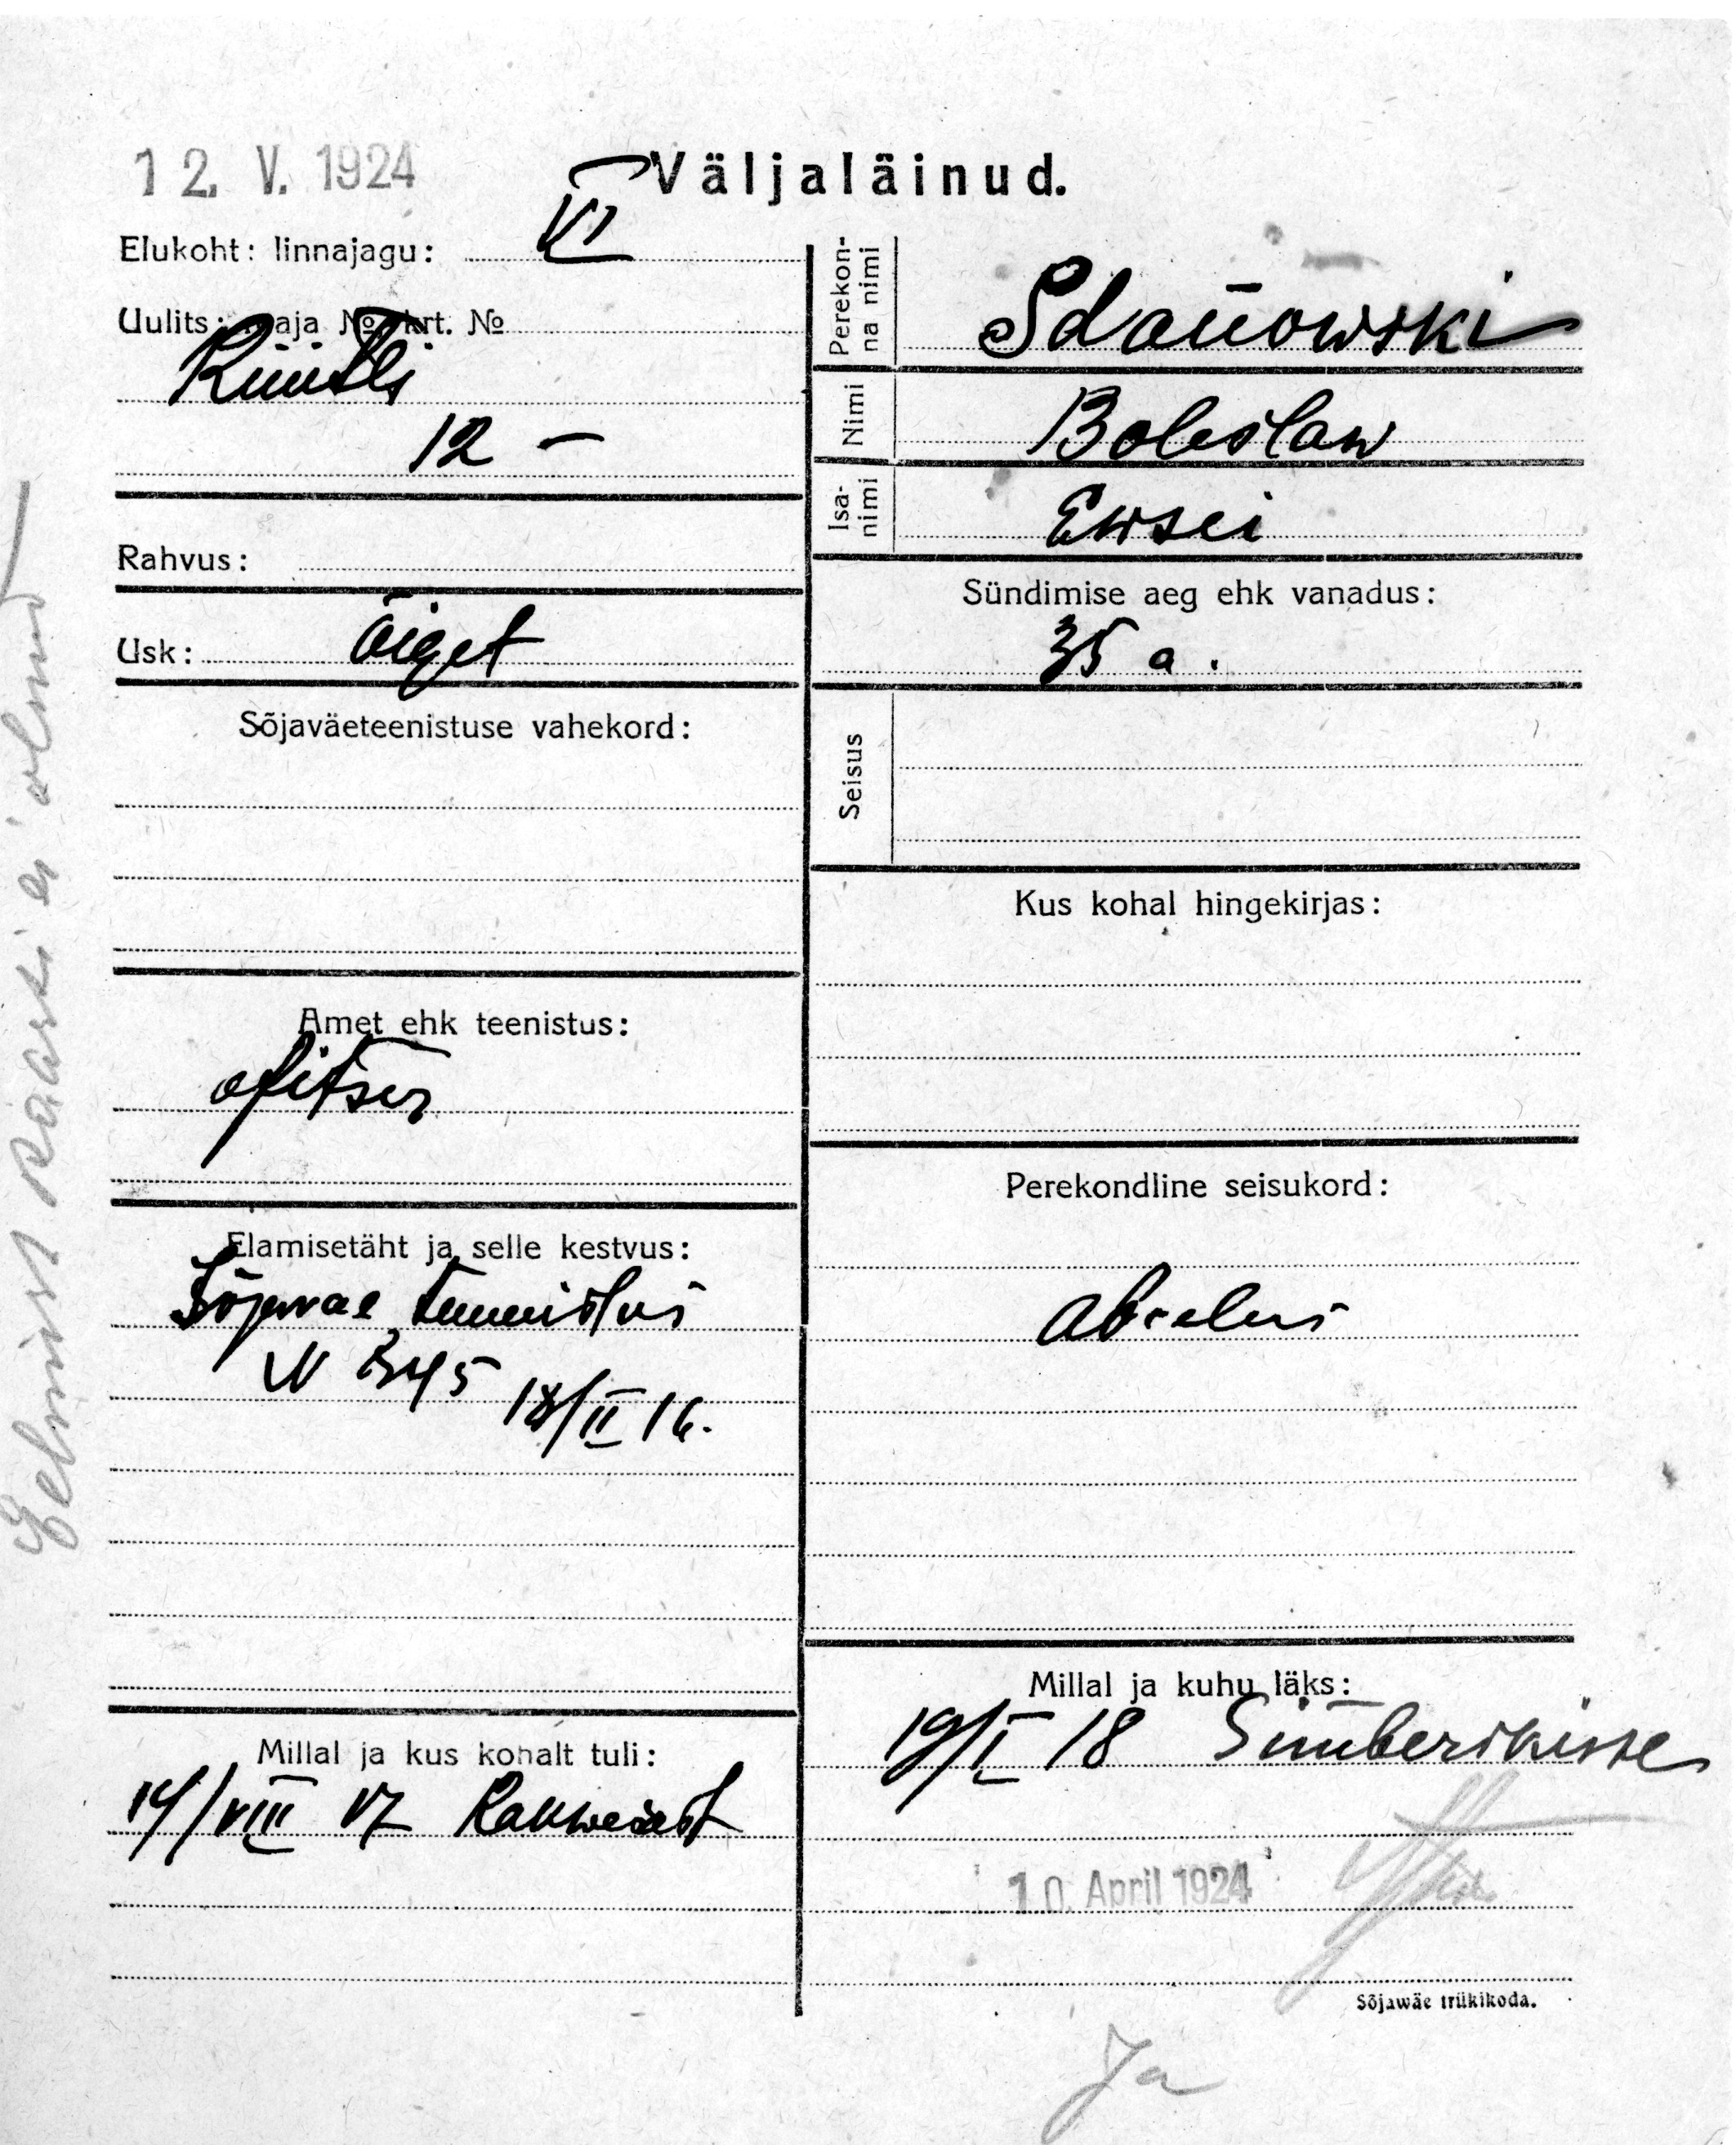 12. V. 1924
Väljaläinud.
Elukoht: linnajagu: VI
Uulits: maja № krt. №
Rüütli
12 —
Rahvus:
Usk: õiget
Sõjaväeteenistuse vahekord:
Amet ehk teenistus:
ofitser
Elamisetäht ja selle kestvus:
Sõjavae teenistus
N 545 18/II 16.
Millal ja kus kohalt tuli:
14/VIII 17 Rakwerest
Perekonna nimi Sdanowski
Nimi Boleslaw
Isanimi Ewsei
Sündimise aeg ehk vanadus:
35 a.
Seisus
Kus kohal hingekirjas:
Perekondline seisukord:
abielus
Millal ja kuhu läks:
19/I 18 Simberskisse
10. April 1924
Sõjawäe trükikoda.
Ja
Eelmist kaarti ei olnud